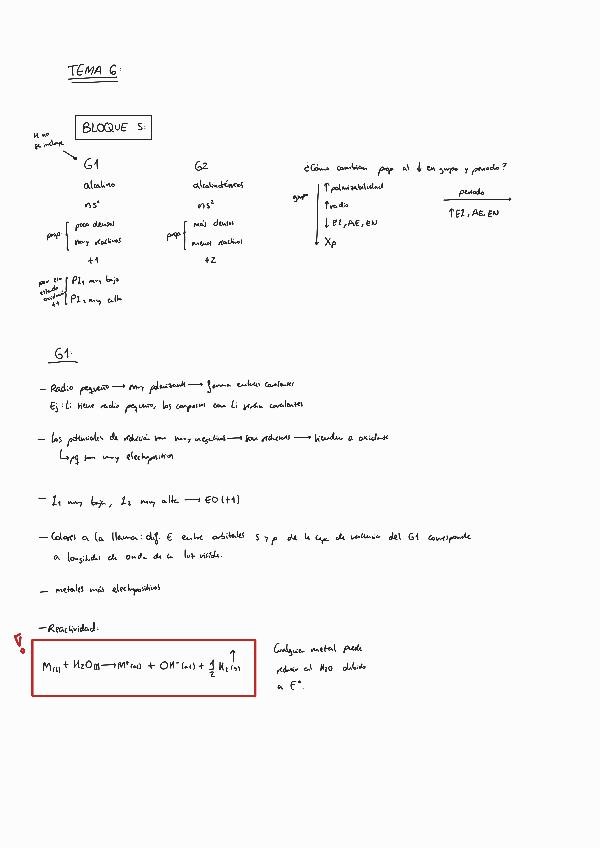 TEMA 6:
BLOQUE S:
H no se incluye
G1
alcalino
ns¹
prop
poco densos
muy reactivos
+1
por eso estado oxidación +1
PI₁ muy bajo
PI₂ muy alto
G2
alcalinotérreos
ns²
prop
más densos
menos reactivos
+2
¿Cómo cambian prop al ↓ en grupo y periodo?
grupo
↑ polarizabilidad
↑ radio
↓ EI, AE, EN
Xp
periodo
↑ EI, AE, EN
G1:
— Radio pequeño → muy polarizante → forma enlaces covalentes
Ej: Li tiene radio pequeño, los compuestos con Li serán covalentes
— Los potenciales de reducción son muy negativos → son reductores → tienden a oxidarse
↳ pq son muy electropositivos
— I₁ muy bajo, I₂ muy alto → EO (+1)
— Colores a la llama: dif. E entre orbitales s y p de la capa de valencia del G1 corresponde
a longitudes de onda de la luz visible.
— metales más electropositivos
— Reactividad:
M(s) + H₂O(l) → M⁺(ac) + OH⁻(ac) + 1/2 H₂(g) ↑
Cualquier metal puede
reducir al H₂O debido
a E°.